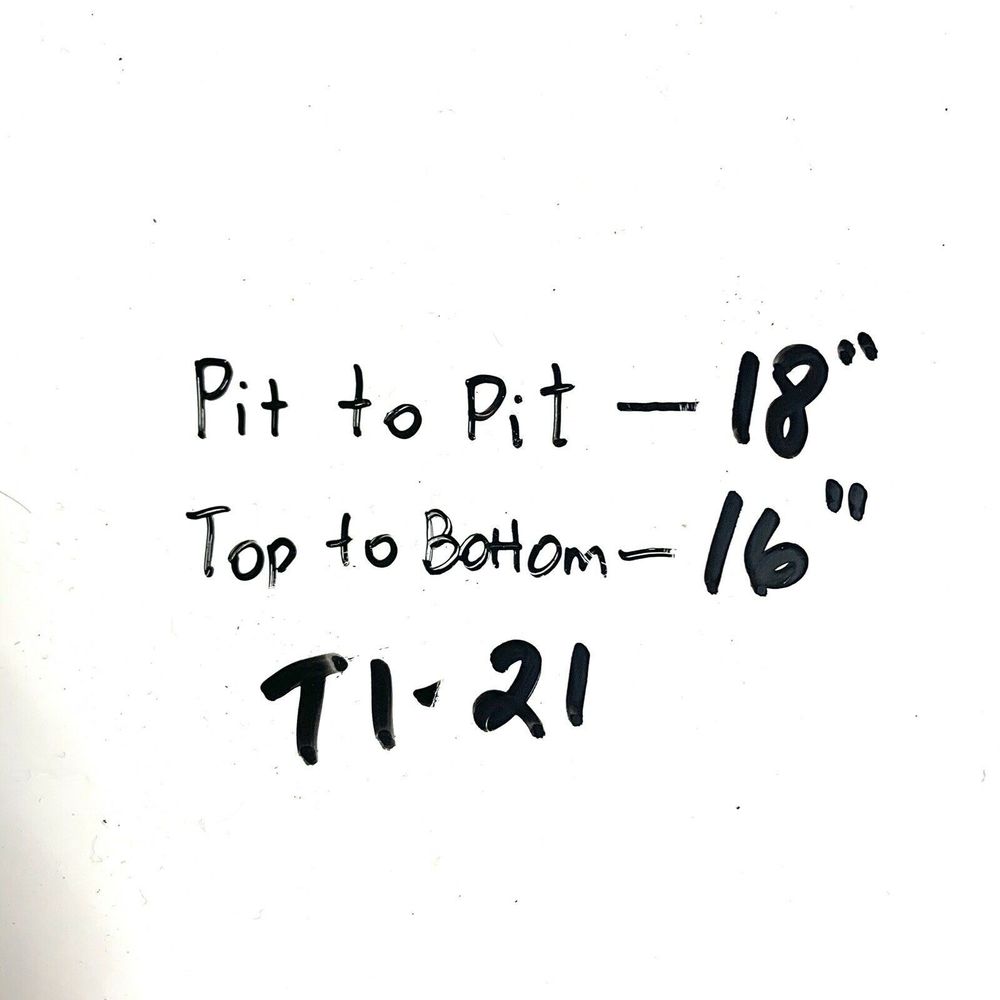 Pit to Pit — 18"
Top to Bottom — 16"
T1-21